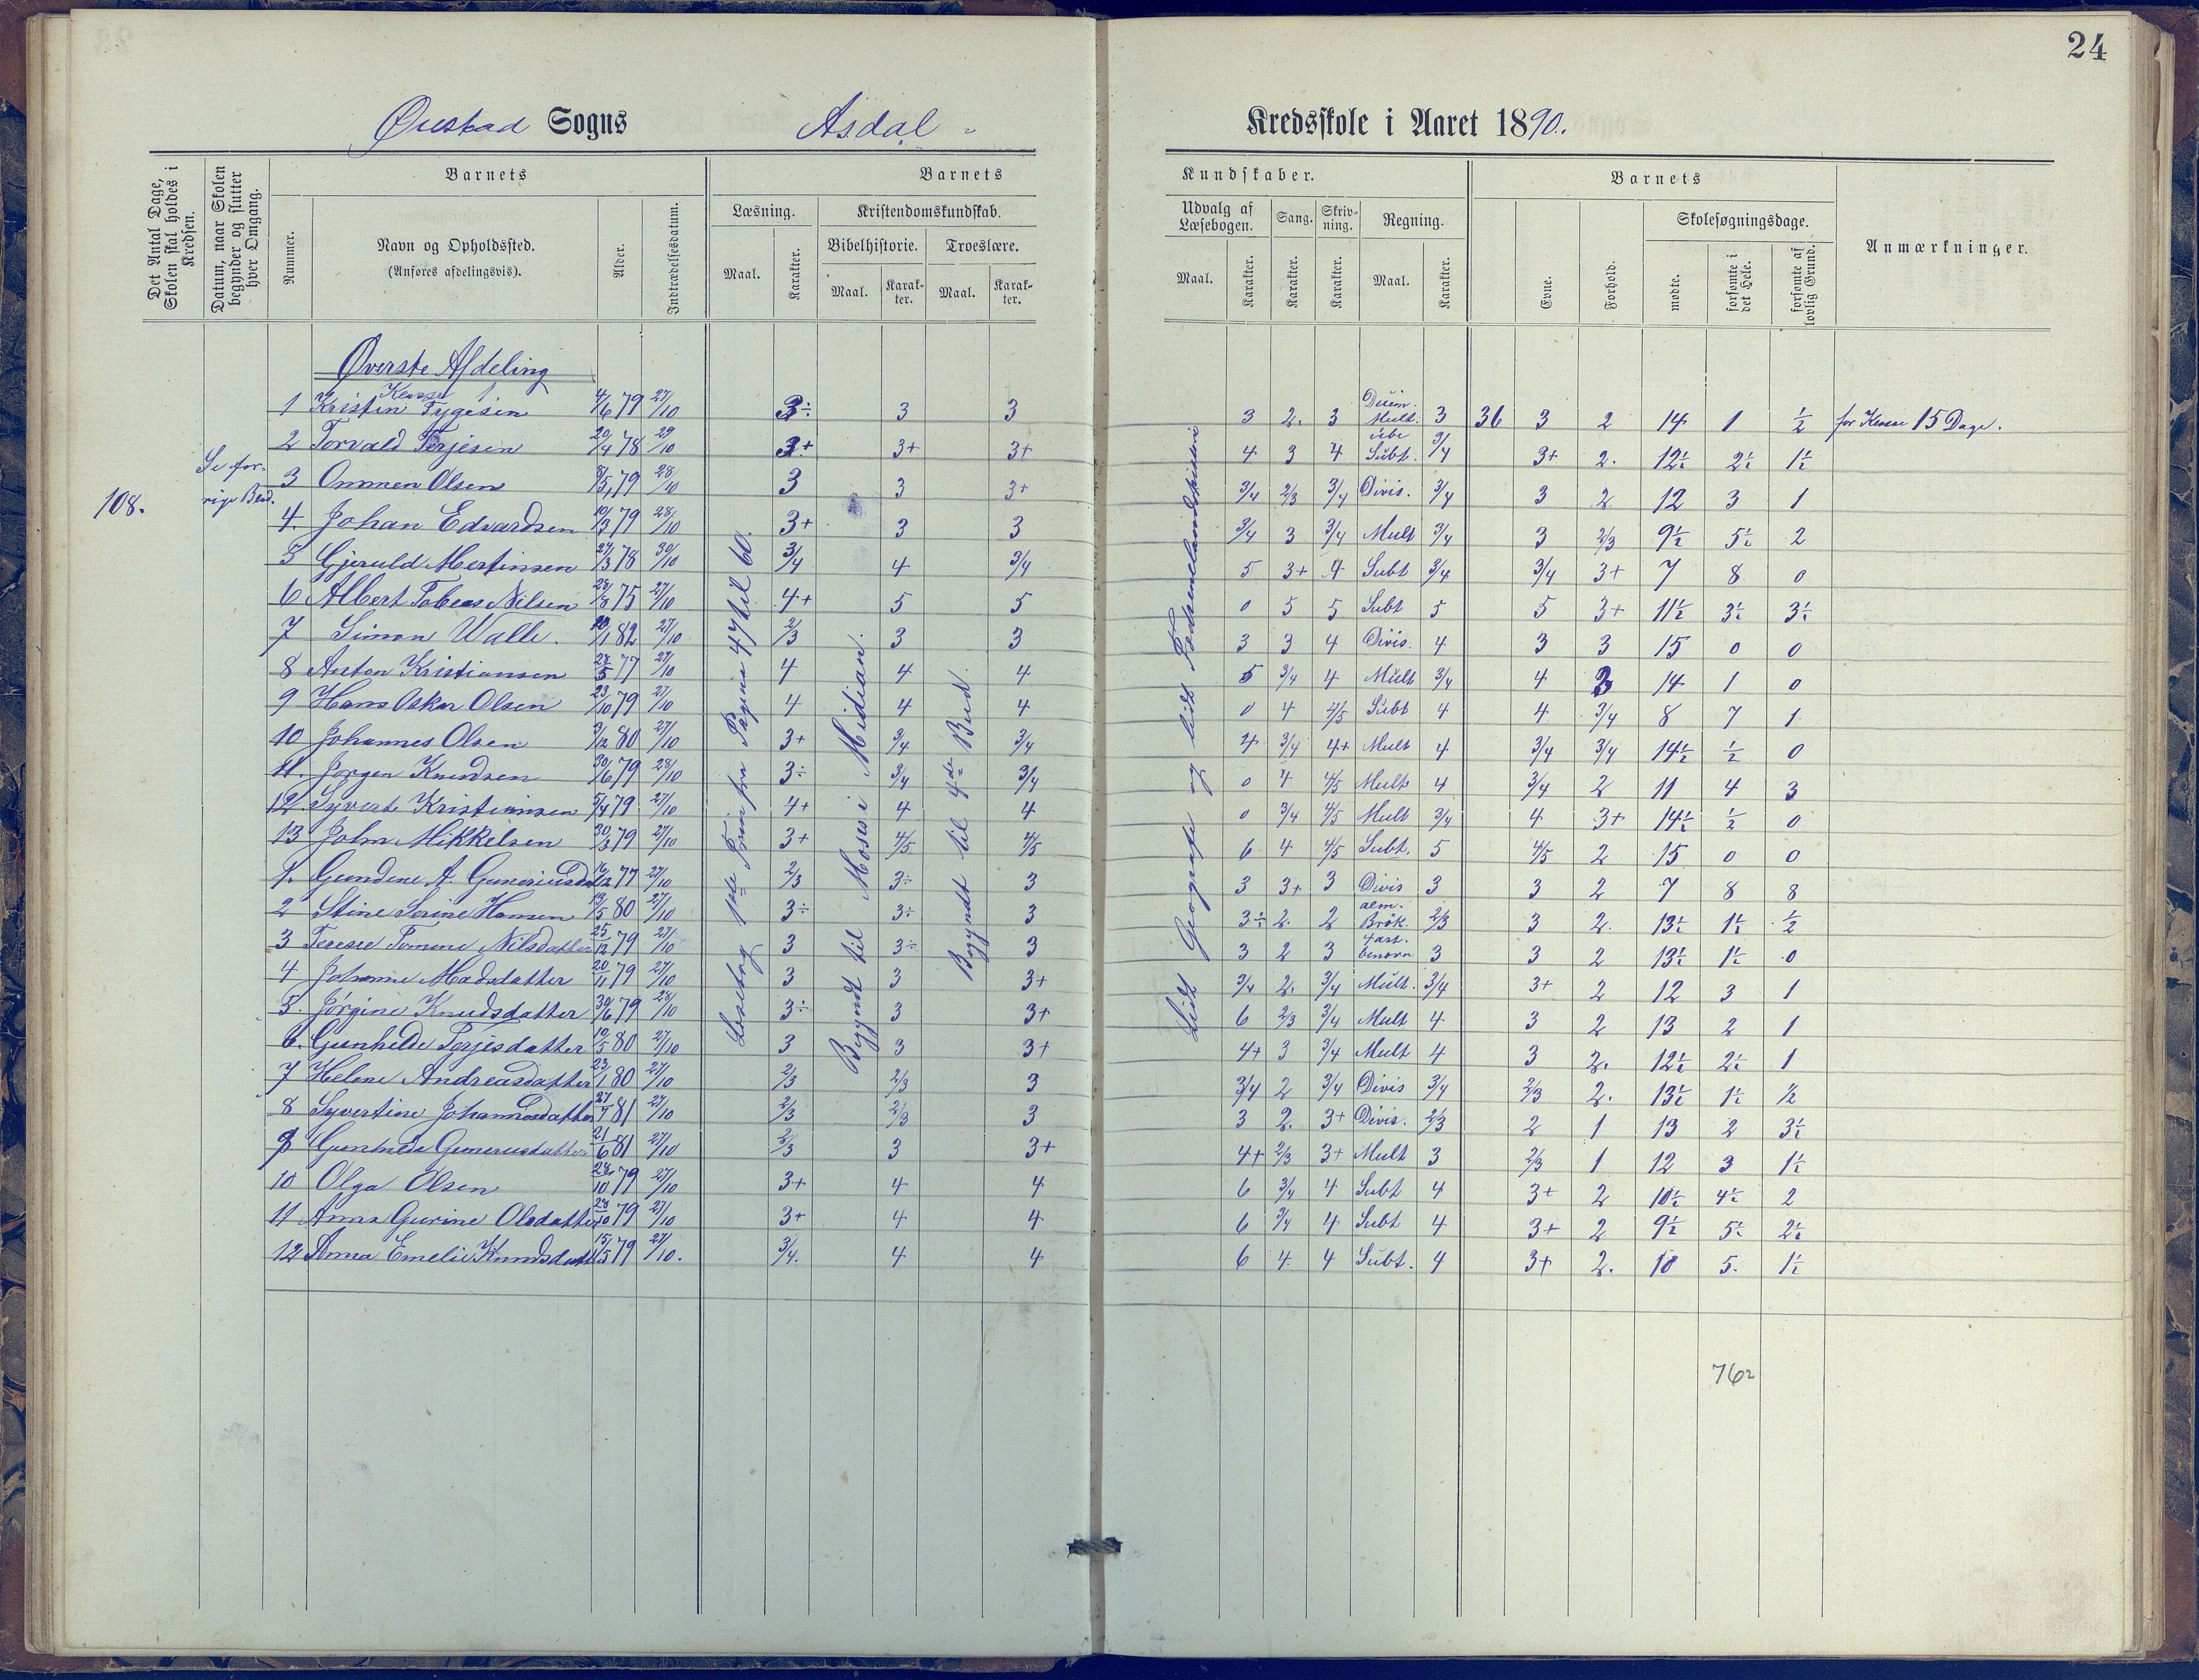 24
Øiestad Sogns Asdal Kredsskole i Aaret 1890.
Det Antal Dage, Skolen skal holdes i Kredsen.
Datum, naar Skolen begynder og slutter hver Omgang.
Barnets
Nummer.
Navn og Opholdssted.
(Anføres afdelingsvis).
Alder.
Indtrædelsesdatum.
Barnets
Læsning.
Maal.
Karakter.
Kristendomskundskab.
Bibelhistorie.
Maal.
Karakter.
Troeslære.
Maal.
Karakter.
Kundskaber.
Udvalg af Læsebogen.
Maal.
Karakter.
Sang.
Karakter.
Skrivning.
Karakter.
Regning.
Maal.
Karakter.
Barnets
Evne.
Forhold.
Skolesøgningsdage.
mødte.
forsømte i det Hele.
forsømte af lovlig Grund.
Anmærkninger.
Øverste Afdeling
Klasse 1
108.
Se forrige Blad.
Læsebog 1ste Trin fra Pagina 47 til 60.
Begyndt til Moses i Midian.
Begyndt til 4de Bud.
Lidt Geografi og lidt Fædrenelandshistorie
1 Kristen Tygesen 4/6 79 27/10 3÷ 3 3 3 2. 3 Mult. 3 36 3 2 14 1 ½ for Klasse 15 Dage.
2 Torvald Terjesen 20/4 78 29/10 3+ 3+ 3+ 4 3 4 Subt. 3/4 3+ 2. 12½ 2½ 1½
3 Ommen Olsen 8/5 79 28/10 3 3 3+ 3/4 2/3 3/4 Divis. 3/4 3 2 12 3 1
4. Johan Edvardsen 10/3 79 28/10 3+ 3 3 3/4 3 3/4 Mult 3/4 3 2/3 9½ 5½ 2
5 Gjeruld Mertinsen 24/3 78 30/10 3/4 4 3/4 5 3+ 4 Subt 3/4 3/4 3+ 7 8 0
6 Albert Tobias Nilsen 28/8 75 27/10 4+ 5 5 0 5 5 Subt 5 5 3+ 11½ 3½ 3½
7 Simon Walle. 82 27/10 2/3 3 3 3 3 4 Divis. 4 3 3 15 0 0
8 Anton Kristiansen 28/5 77 27/10 4 4 4 5 3/4 4 Mult 3/4 4 3 14 1 0
9 Hans Oskar Olsen 23/10 79 27/10 4 4 4 0 4 4/5 Subt 4 4 3/4 8 7 1
10 Johannes Olsen 3/12 80 27/10 3+ 3/4 3/4 4 3/4 4+ Mult 4 3/4 3/4 14½ ½ 0
11. Jørgen Knudsen 30/6 79 28/10 3÷ 3/4 3/4 0 4 4/5 Mult 4 3/4 2 11 4 3
12. Syvert Kristiansen 5/4 79. 27/10 4+ 4 4 0 3/4 4/5 Mult 3/4 4 3+ 14½ ½ 0
13 John Mikkelsen 30/3 79 27/10 3+ 4/5 4/5 6 4 4/5 Subt. 5 4/5 2 15 0 0
1. Gundene A. Gunerius 77 27/10 2/3 3÷ 3 3 3+ 3 Divis 3 3 2 7 8 8
2 Stine Serine Hansen 19/5 80 27/10 3÷ 3÷ 3 3÷ 2. 2 alm. Brøk. 2/3 3 2. 13½ 1½ ½
3 Terese Tomine Nilsdatter 25/12 79 27/10 3 3÷ 3 3 2 3 3 3 2 13½ 1½ 0
4 Johanne Madsdatter 20/11 79 27/10 3 3 3+ 3/4 2. 3/4 Mult. 3/4 3+ 2 12 3 1
5. Jørgine Knudsdatter 30/6 79 28/10 3÷ 3 3+ 6 2/3 3/4 Mult 4 3 2 13 2 1
6. Gunhilde Terjesdatter 10/5 80 27/10 3 3 3+ 4+ 3 3/4 Mult 4 3 2. 12½ 2½ 1
7 Helene Andreasdatter 23/1 80 27/10 2/3 2/3 3 3/4 2 3/4 Divis 3/4 2/3 2. 13½ 1½ ½
8 Syvertine Johannesdatter 81 27/10 2/3 2/3 3 3 2. 3+ Divis. 2/3 2 1 13 2 3½
9 Gunhilde Guneriusdatter 21/6 81 27/10 2/3 3 3+ 4+ 2/3 3+ Mult 3 2/3 1 12 3 1½
10 Olga Olsen 28/10 79 27/10 3+ 4 4 6 3/4 4 Subt 4 3+ 2 10½ 4½ 2
11 Anna Gurine Olsdatter 28/10 79 27/10 3+ 4 4 6 3/4 4 Subt 4 3+ 2 9½ 5½ 2½
12 Anna Emelie Knudsdatt 15/5 79 27/10. 3/4. 4 4 6 4 4 Subt. 4 3+ 2. 10 5. 1½
76½